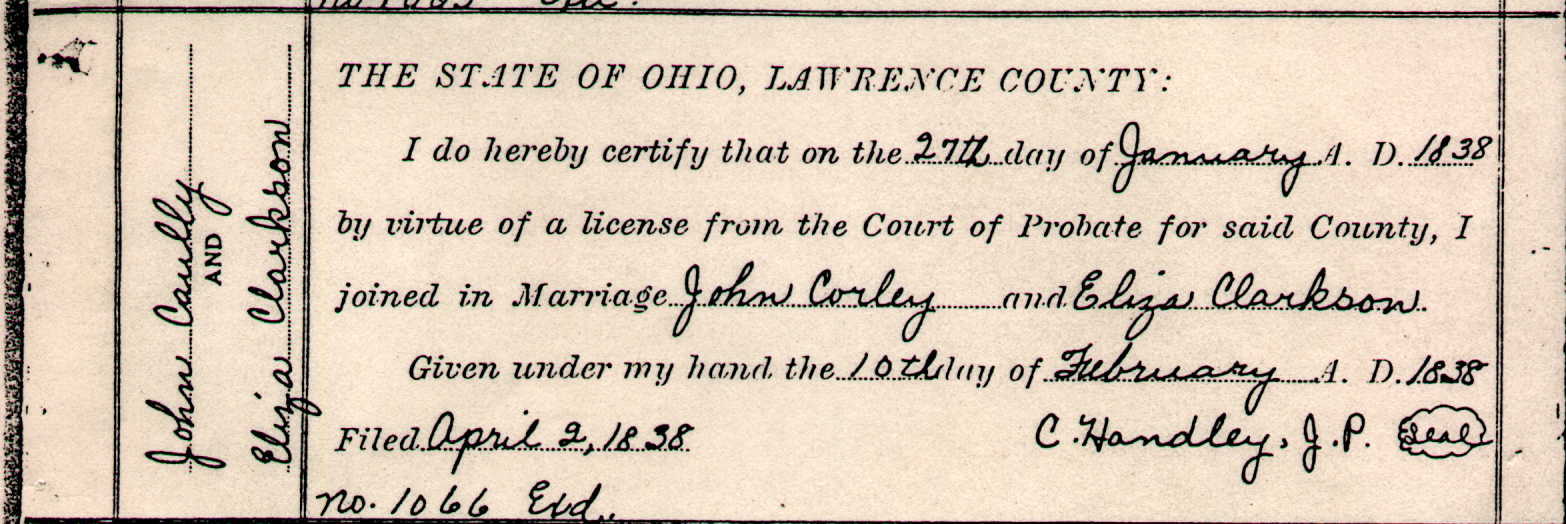 John Caully
AND
Eliza Clarkson
THE STATE OF OHIO, LAWRENCE COUNTY:
I do hereby certify that on the 27th day of January A. D. 1838
by virtue of a license from the Court of Probate for said County, I
joined in Marriage John Corley and Eliza Clarkson.
Given under my hand the 10th day of February A. D. 1838
Filed April 2, 1838
C. Handley, J.P. Seal
no. 1066 Exd.